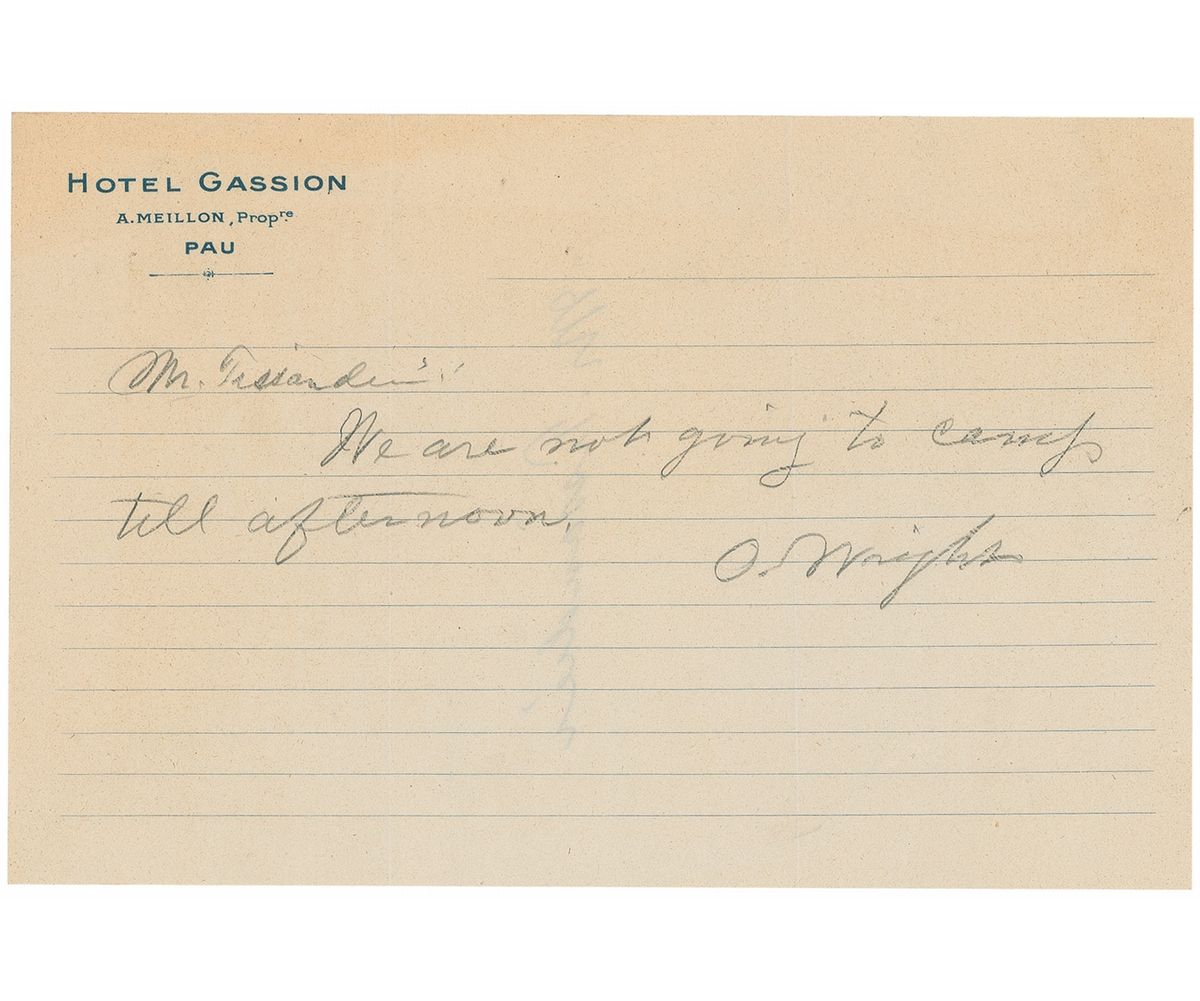 HOTEL GASSION
A. MEILLON, Propre
PAU
Mr. Tissandier:
We are not going to camp
till afternoon.
O. Wright